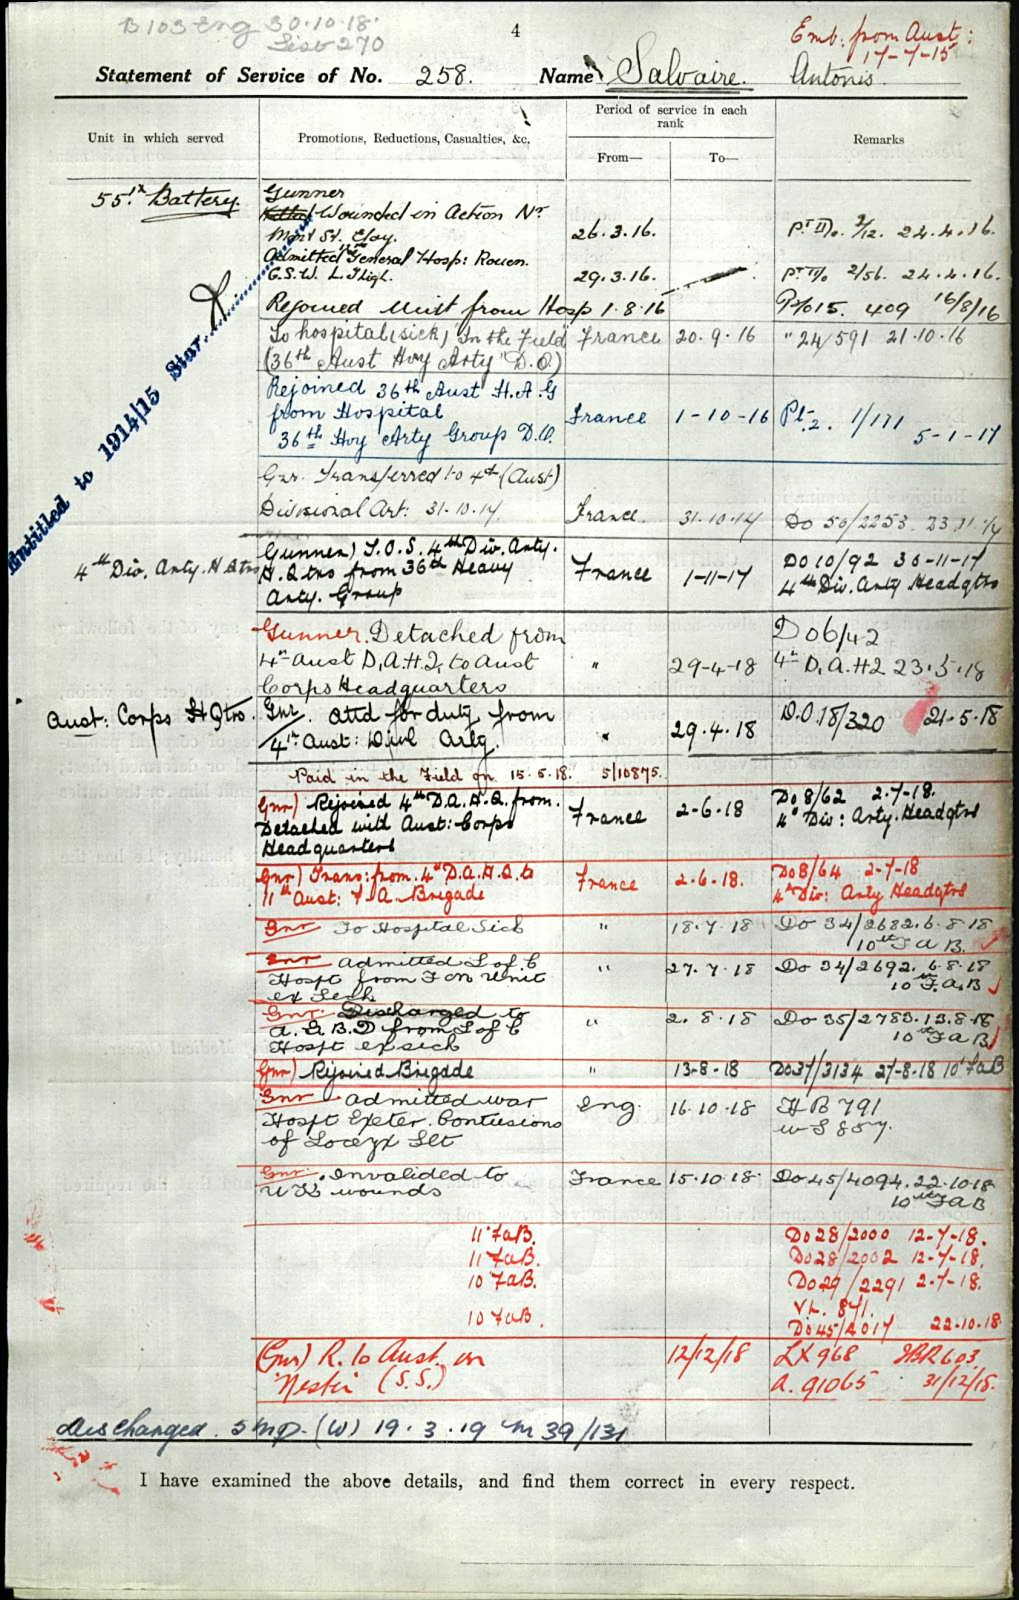 B103 Eng 30.10.18.
List 270
4
Emb: from Aust:
17-7-15
Statement of Service of No. 258. Name Salvaire. Antonis
Unit in which served
Promotions, Reductions, Casualties, &c.
Period of service in each
rank
From—
To—
Remarks
55th Battery.
Gunner
Wounded in Action Nr
Mont St. Eloy. 26.3.16. Pt II 2/12. 24.4.16.
Admitted General Hosp: Rouen.
G.S.W. L. Thigh. 29.3.16. 2/56. 24.4.16.
Rejoined Unit from Hosp 1.8.16 15. 409 16/8/16
Entitled to 1914/15 Star.
To hospital (sick) In the Field France 20.9.16 " 24/591 21.10.16
(36th Aust Hvy Arty D.O)
Rejoined 36th Aust H.A.G
from Hospital France 1-10-16 Pt. 2. 1/171
36th Hvy Arty Group D.O. 5-1-17
Gnr. Transferred to 4th (Aust)
Divisional Art: 31.10.17. France 31.10.17 Do 50/2253 23.11.17
4th Div. Arty. H Qtrs
Gunner) T.O.S. 4th Div. Arty. Do 10/92 30-11-17
H.Qtrs from 36th Heavy France 1-11-17 4th Div. Arty Headqtrs
Arty. Group
Gunner. Detached from Do 6/42
4th Aust D.A.H.Q. to Aust " 29-4-18 4th D.A.H2 23.5.18
Corps Headquarters
Aust: Corps H Qtrs.
Gnr. attd for duty from D.O.18/320 21-5-18
4th Aust: Divl Artg. " 29.4.18
Paid in the Field on 15.5.18. 5/10875.
Gnr) Rejoined 4th D.A.H.Q. from. France 2-6-18 Do 8/62 2-7-18.
Detached with Aust: Corps 4th Div: Arty. Headqtrs
Headquarters
Gnr) Trans: from 4th D.A.H.Q. to France 2-6-18. Do 8/64 2-7-18
11th Aust: F.A. Brigade 4th Div: Arty Headqtrs
Gnr To Hospital Sick " 18.7.18 Do 34/2682. 6.8.18
10th F A B.
Gnr admitted L of C " 27.7.18 Do 34/2692. 6.8.18
Hospt from F on Unit 10th F.A.B
ex Sick
Gnr. Discharged to " 2.8.18 Do 35/2783. 13.8.18
A.G.B.D from L of C 10th F A B
Hospt ex sick
Gnr) Rejoined Brigade " 13-8-18 Do 37/3134 27-8-18 10 FAB
Gnr admitted War Eng. 16.10.18 H B 791
Hospt Exeter. Contusions
of
Gnr. Invalided to France 15.10.18 Do 45/4094. 22.10.18
U K wounds 10th F A B
11 FAB. Do 28/2000 12-7-18.
11 FAB. Do 28/2002 12-7-18.
10 FAB. Do 29/2291 2-7-18.
VL. 841.
10 FAB. Do 45/4017 22.10.18
(Gnr) R. to Aust. on 12/12/18 LX 968 HBR 603.
"Nestor" (S.S.) A. 91065 31/12/18.
Discharged. 3 M.D. (W) 19.3.19 M 39/131
I have examined the above details, and find them correct in every respect.